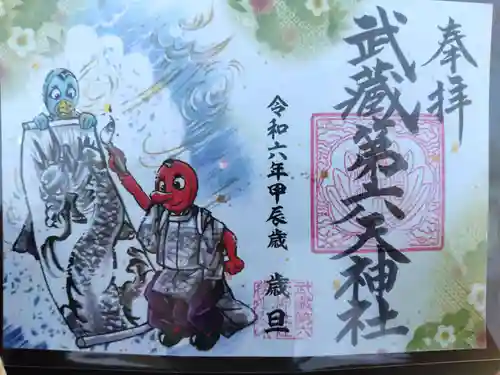 奉拝
武蔵第六天神社
令和六年甲辰歳
歳旦